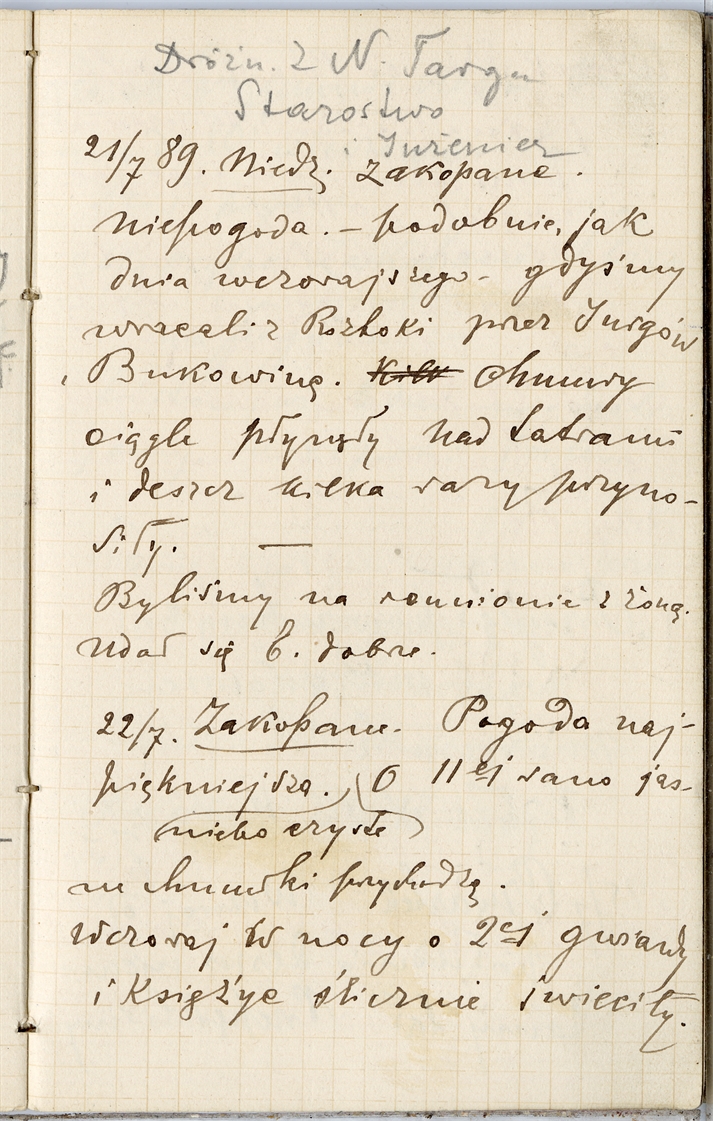 Dróżn. z N. Targu
Starostwo
i Inżenier
21/7 89. Niedz. Zakopane.
Niepogoda. – podobnie, jak
dnia wczorajszego – gdyśmy
wracali z Roztoki przez Jurgów
i Bukowinę. Kilk Chmury
ciągle płynęły nad Tatrami
i deszcz kilka razy przyno-
siły. —
Byliśmy na reunionie z żoną.
Udał się b. dobrze.
22/7. Zakopane. Pogoda naj-
piękniejsza. O 11ej rano jas-
niebo czyste
ne chmurki przychodzą.
Wczoraj w nocy o 2ej gwiazdy
i Księżyc ślicznie świeciły.